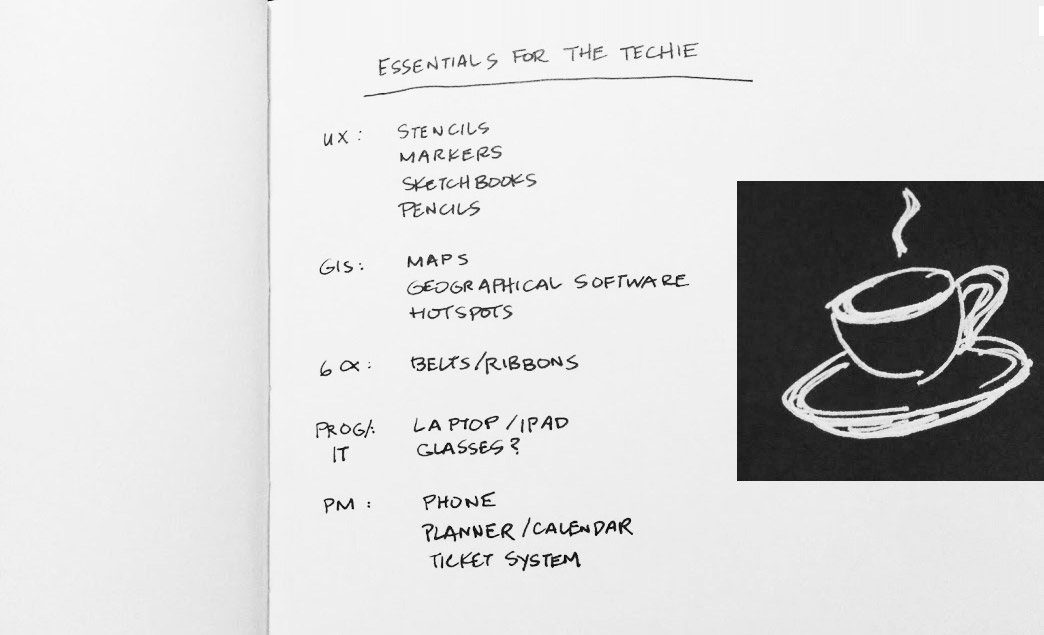 ESSENTIALS FOR THE TECHIE
UX: STENCILS
MARKERS
SKETCHBOOKS
PENCILS
GIS: MAPS
GEOGRAPHICAL SOFTWARE
HOTSPOTS
6 α: BELTS/RIBBONS
PROG/: LAPTOP/IPAD
IT GLASSES?
PM: PHONE
PLANNER/CALENDAR
TICKET SYSTEM